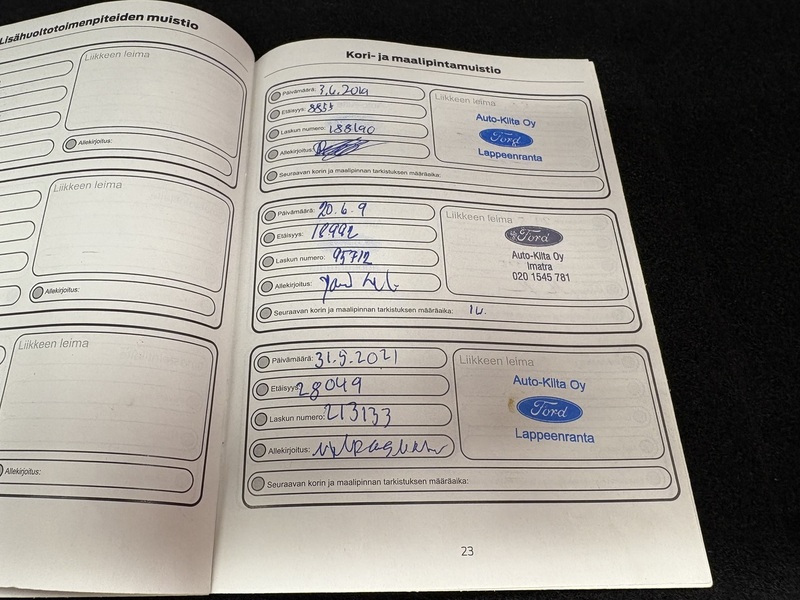 Lisähuoltotoimenpiteiden muistio
Liikkeen leima
Allekirjoitus:
Liikkeen leima
Allekirjoitus:
Liikkeen leima
Allekirjoitus:
Kori- ja maalipintamuistio
Päivämäärä: 3.6.2019
Etäisyys: 8857
Laskun numero: 188190
Allekirjoitus:
Seuraavan korin ja maalipinnan tarkistuksen määräaika:
Liikkeen leima
Auto-Kilta Oy
Ford
Lappeenranta
Päivämäärä: 20.6.9
Etäisyys: 18992
Laskun numero: 95712
Allekirjoitus:
Seuraavan korin ja maalipinnan tarkistuksen määräaika:
Liikkeen leima
Ford
Auto-Kilta Oy
Imatra
020 1545 781
Päivämäärä: 31.5.2021
Etäisyys: 28049
Laskun numero: 213133
Allekirjoitus:
Seuraavan korin ja maalipinnan tarkistuksen määräaika:
Liikkeen leima
Auto-Kilta Oy
Ford
Lappeenranta
23